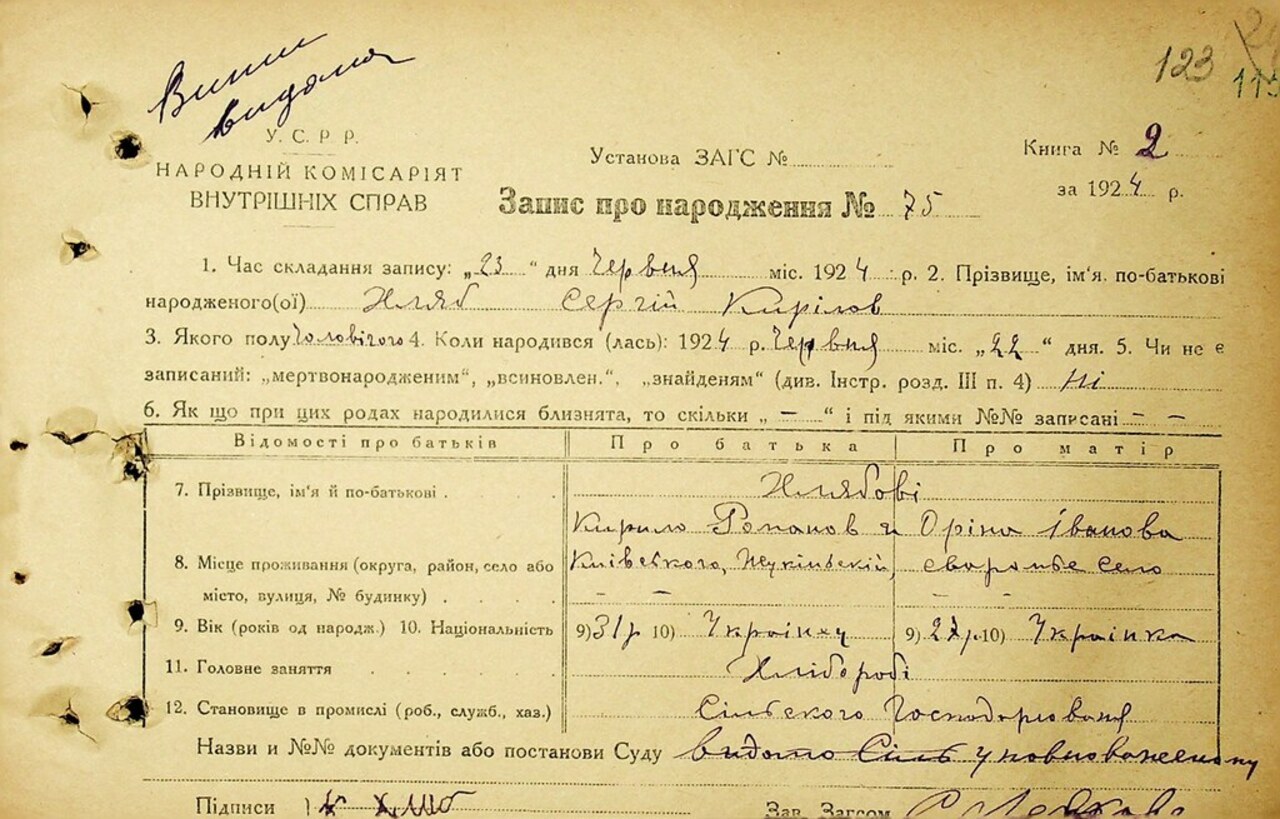 видана
123
У. С. Р. Р.
НАРОДНІЙ КОМІСАРІЯТ
ВНУТРІШНІХ СПРАВ
Установа ЗАГС №
Книга № 2
за 1924 р.
Запис про народження № 75
1. Час складання запису: „23“ дня Червня міс. 1924 р. 2. Прізвище, ім‘я. по-батькові
народженого(ої) Хляб Сергій Кирілов
3. Якого полу Чоловічого 4. Коли народився (лась): 1924 р. Червня міс. „22“ дня. 5. Чи не є
записаний: „мертвонародженим“, „всиновлен.“, „знайденям“ (див. Інстр. розд. III п. 4) Ні
6. Як що при цих родах народилися близнята, то скільки „ — “ і під якими №№ записані — —
Відомості про батьків Про батька Про матір
7. Прізвище, ім‘я й по-батькові Хлябові
Кирило Романов и Оріна Іванова
8. Місце проживання (округа, район, село або Київського, село
місто, вулиця, № будинку) — —
9. Вік (років од народж.) 10. Національність 9) 31 р 10) Українец 9) 27 р. 10) Українка
11. Головне заняття Хлібороби
12. Становище в промислі (роб., служб., хаз.) Сільского Господарювання
Назви и №№ документів або постанови Суду видано Сіль уповноваженому
Підписи К Хляб Зав. Загсом